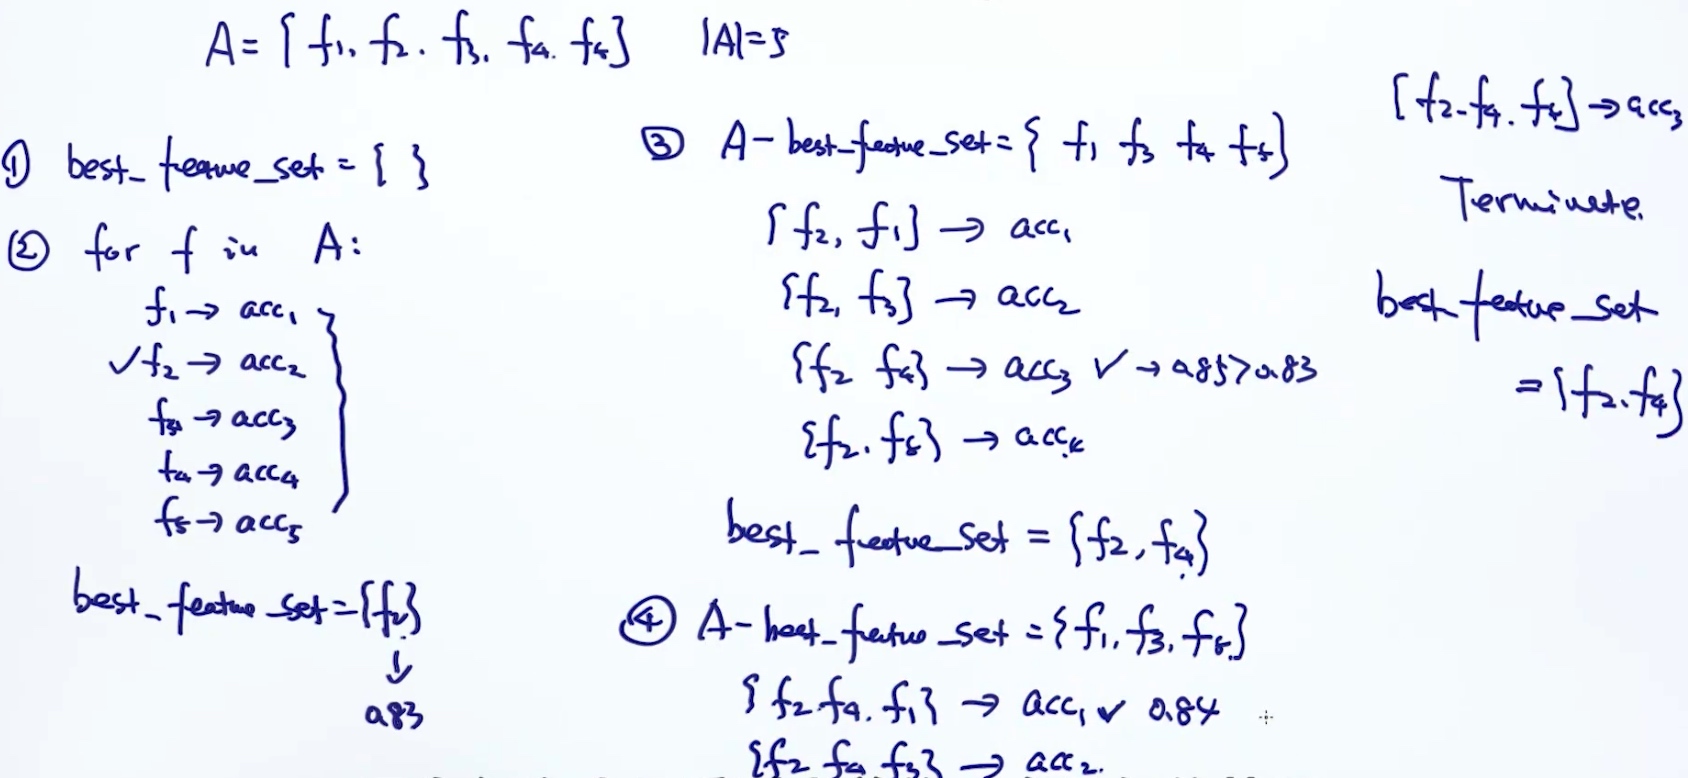 A = { f1, f2, f3, f4, f5 } |A|=5
① best_feature_set = { }
② for f in A:
f1 → acc1
✓ f2 → acc2
f3 → acc3
f4 → acc4
f5 → acc5
best_feature_set = {f2}
↓
0.83
③ A - best_feature_set = { f1 f3 f4 f5 }
{ f2, f1 } → acc1
{ f2, f3 } → acc2
{ f2 f4 } → acc3 ✓ → 0.85 > 0.83
{ f2, f5 } → acc4
best_feature_set = {f2, f4}
④ A - best_feature_set = { f1, f3, f5 }
{ f2 f4, f1 } → acc1 ✓ 0.84
{ f2 f4 f3 } → acc2.
{ f2, f4, f5 } → acc3
Terminate.
best_feature_set
= { f2, f4 }